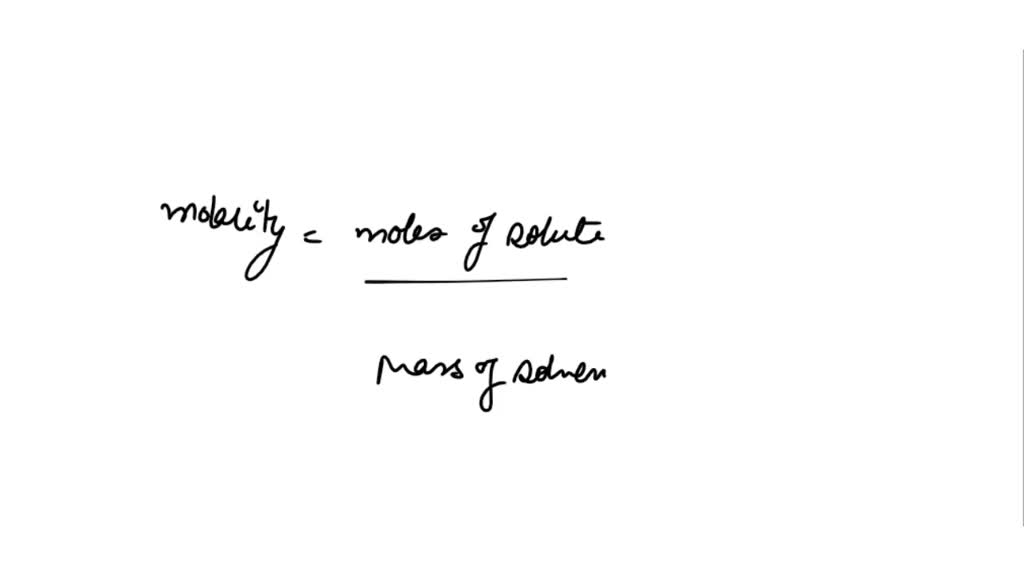 molality = moles of solute
Mass of solven